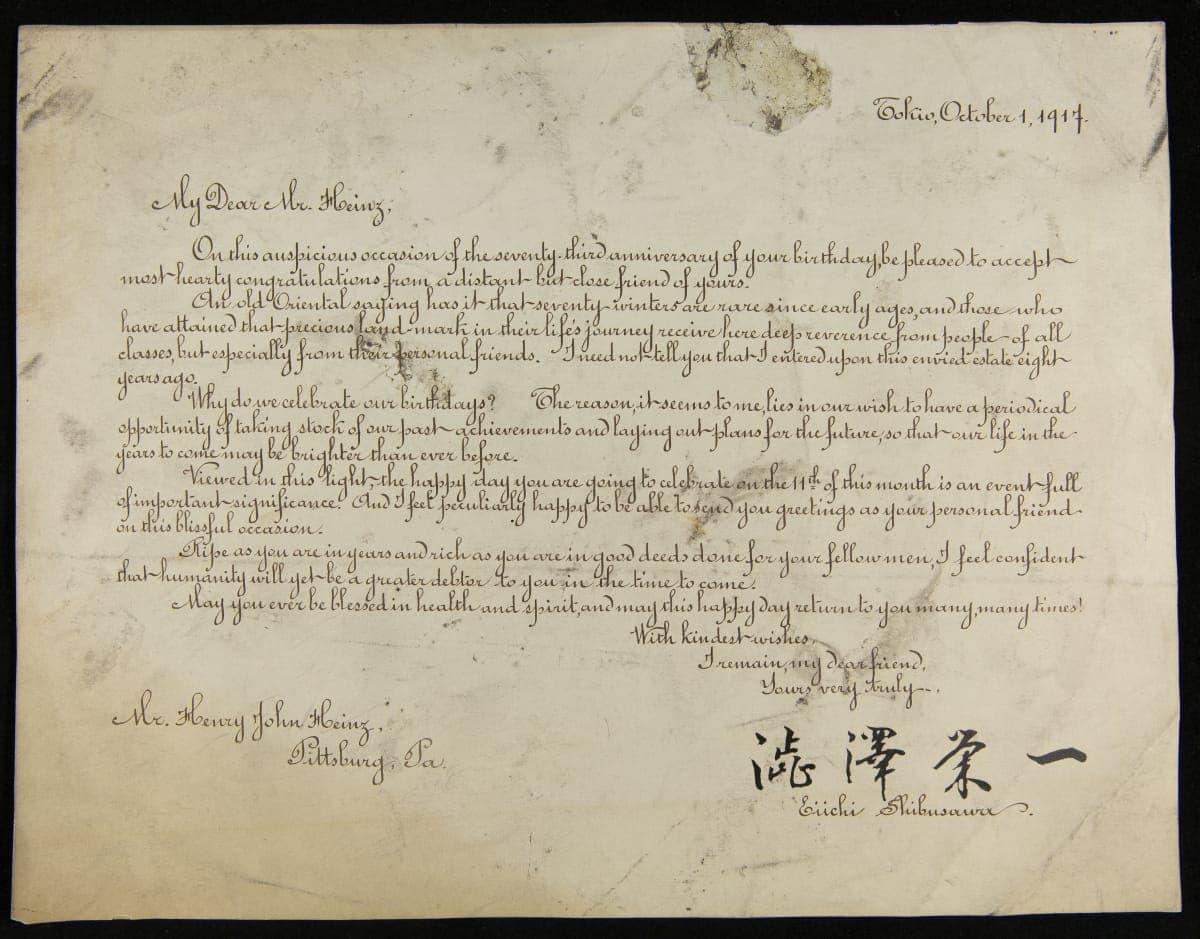 Tokio, October 1, 1917.
My Dear Mr. Heinz,
On this auspicious occasion of the seventy-third anniversary of your birthday, be pleased to accept
most hearty congratulations from a distant but close friend of yours.
An old Oriental saying has it that seventy winters are rare since early ages, and those who
have attained that precious land-mark in their life's journey receive here deep reverence from people of all
classes, but especially from their personal friends. I need not tell you that I entered upon this envied estate eight
years ago.
Why do we celebrate our birthdays? The reason, it seems to me, lies in our wish to have a periodical
opportunity of taking stock of our past achievements and laying out plans for the future, so that our life in the
years to come may be brighter than ever before.
Viewed in this light, the happy day you are going to celebrate on the 11th of this month is an event full
of important significance. And I feel peculiarly happy to be able to send you greetings as your personal friend
on this blissful occasion.
Ripe as you are in years and rich as you are in good deeds done for your fellow men, I feel confident
that humanity will yet be a greater debtor to you in the time to come.
May you ever be blessed in health and spirit, and may this happy day return to you many, many times!
With kindest wishes,
I remain, my dear friend,
Yours very truly,
Mr. Henry John Heinz,
Pittsburg, Pa.
澁澤榮一
Eiichi Shibusawa.